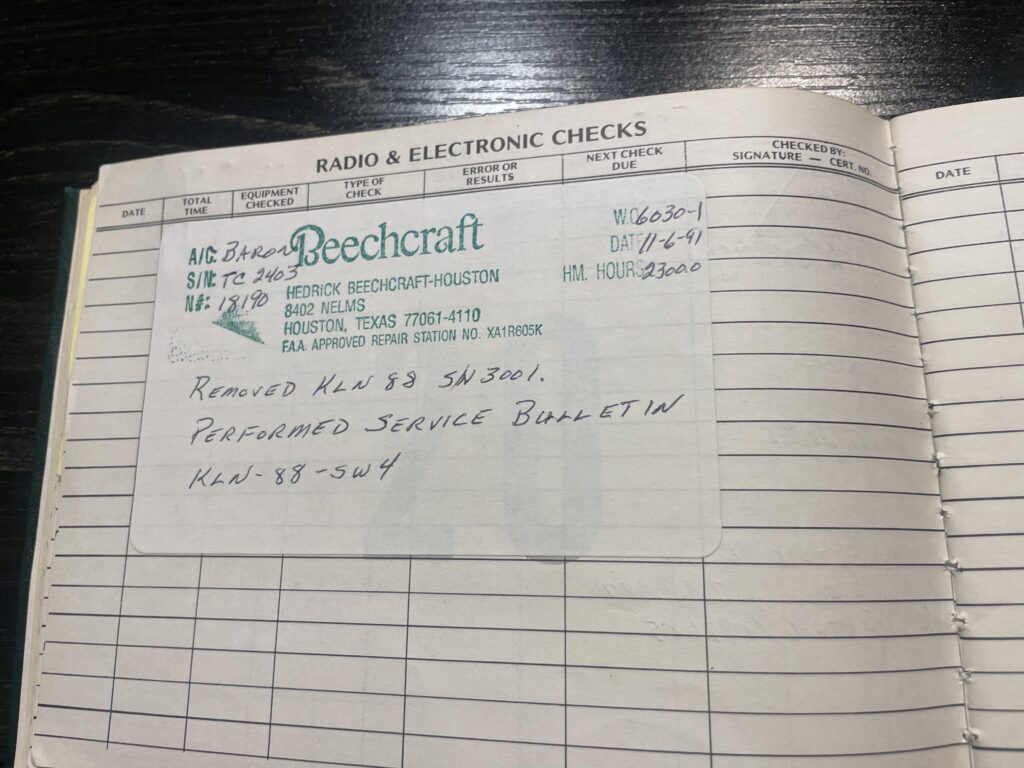 RADIO & ELECTRONIC CHECKS
DATE
TOTAL TIME
EQUIPMENT CHECKED
TYPE OF CHECK
ERROR OR RESULTS
NEXT CHECK DUE
CHECKED BY:
SIGNATURE — CERT. NO.
DATE
A/C: BARON
S/N: TC 2403
N#: 18190
Beechcraft
HEDRICK BEECHCRAFT-HOUSTON
8402 NELMS
HOUSTON, TEXAS 77061-4110
F.A.A. APPROVED REPAIR STATION NO. XA1R605K
W.O 6030-1
DATE 11-6-91
HM. HOURS 2300.0
REMOVED KLN 88 SN 3001.
PERFORMED SERVICE BULLETIN
KLN-88-SW4